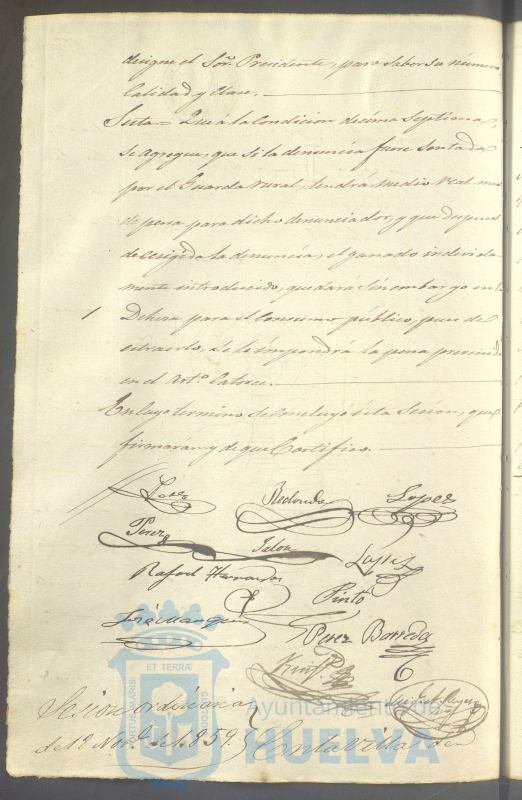 designe el Sor. Presidente, para saber su número
Calidad y Clase.
Sesta = Que á la Condicion decima Septima,
se agregue, que si la denuncia fuere sentada
por el Guarda Rural, tendrá medio Real mas
de pena para dicho denunciador, y que despues
de exigida la denuncia, el ganado indevida-
mente introducido, quedará sin embargo en la
Dehesa para el Consumo público, pues de
extraerlo, se le impondrá la pena prevenida
en el Artº. Catorce.
En cuyo termino se concluyó ésta Sesion, que
firmarán y de que Certifico.
Redondo Lopez
Perez
Rafael Hernandez Lopez
Pinto
José
Perez Barreda
Sesion ordinaria
de 12 Novre. de 1.859. En la Villa de
ET TERRÆ
PORTUS MARIS
CUSTODIA
Ayuntamiento de
HUELVA